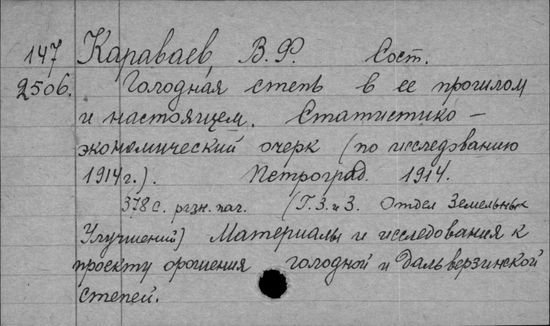 147 Караваев, В. Ф. Сост.
2506. Голодная степь в ее прошлом
и настоящем. Статистико —
экономический очерк (по исследованию
1914 г.). Петроград. 1914.
378 с. разн. паг. (Г. З. и З. Отдел Земельных
Улучшений) Материалы и исследования к
проекту орошения голодной и Дальверзинской
степей.